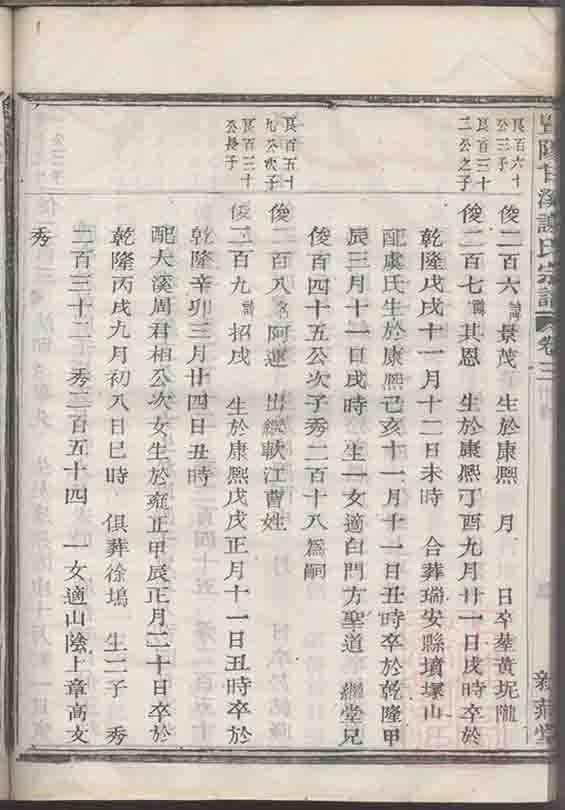 暨陽甘溪謝氏宗譜 卷三
良百六十
公三子
俊二百六 諱 景茂 生於康熙 月 日卒塟黃坭隴
良百三十
二公之子
俊二百七 諱 其恩 生於康熙丁酉九月廿一日戌時卒於
乾隆戊戌十一月十二日未時 合葬瑞安縣墳塚山
配虞氏生於康熙己亥十一月十一日丑時卒於乾隆甲
辰三月十一日戌時 生一女適白門方聖道 繼堂兄
俊百四十五公次子秀二百十八爲嗣
良百五十
九公次子
俊二百八 名 阿運 出繼軟江曹姓
良百三十
公長子
俊二百九 諱 招戌 生於康熙戊戌正月十一日丑時卒於
乾隆辛卯三月廿四日丑時
配大溪周君相公次女生於雍正甲辰正月二十日卒於
乾隆丙戌九月初八日巳時 俱葬徐塢 生二子 秀
二百三十二 秀二百五十四 一女適山陰上章高文
秀